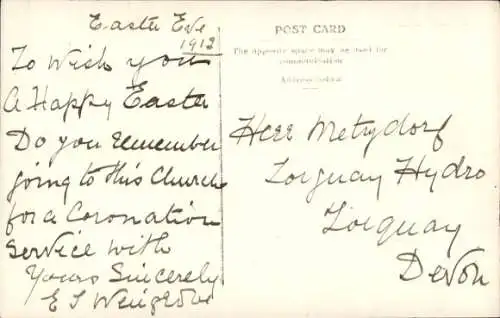 Easter Eve
1912
To Wish you
A Happy Easter
Do you remember
going to this Church
for a Coronation
Service with
Yours Sincerely
E S Wengrove
POST CARD
The opposite space may be used for
communication
Address below
Herr Metzdorf
Torquay Hydro
Torquay
Devon